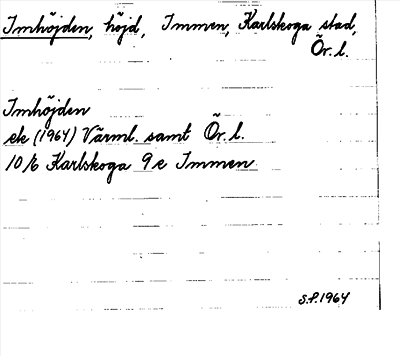 Imhöjden, höjd, Immen, Karlskoga stad,
Ör. l.
Imhöjden
ek (1964) Värml. samt Ör. l.
10/6 Karlskoga 9e Immen
S.P. 1964